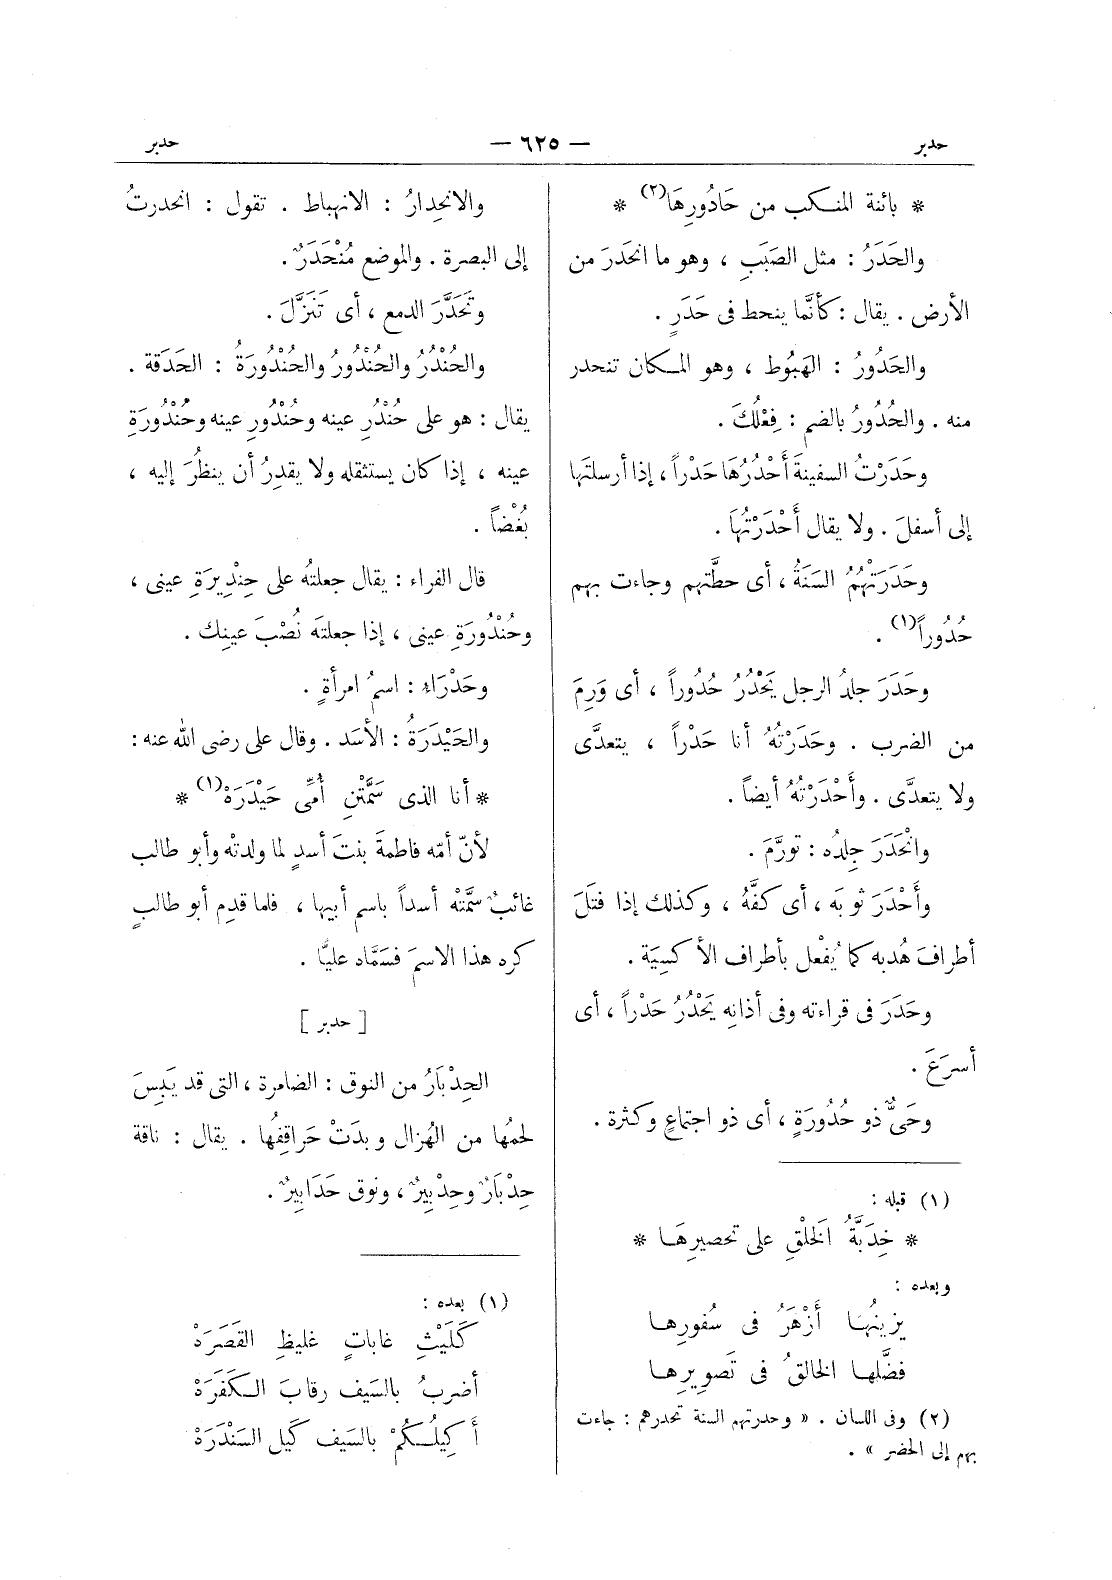 حدبر — ٦٢٥ — حدبر
* بائنة المنكب من حَادُورِهَا(٢) *
والحَدَرُ : مثل الصَبَبِ ، وهو ما انحَدَرَ من
الأرض . يقال : كأنَّما ينحط فى حَدَرٍ .
والحَدُورُ : الهَبُوط ، وهو المكان تنحدر
منه . والحُدُورُ بالضم : فِعْلُكَ .
وحَدَرْتُ السفينةَ أَحْدُرُهَا حَدْراً ، إذا أرسلتَها
إلى أسفلَ . ولا يقال أَحْدَرْتُهَا .
وحَدَرَتْهُمُ السَنَةُ ، أى حطَّتهم وجاءت بهم
حُدُوراً(١) .
وحَدَرَ جلدُ الرجل يَحْدُرُ حُدُوراً ، أى وَرِمَ
من الضرب . وحَدَرْتُهُ أنا حَدْراً ، يتعدَّى
ولا يتعدَّى . وأَحْدَرْتُهُ أيضاً .
وانْحَدَرَ جِلدُه : تورَّمَ .
وأَحْدَرَ ثوبَه ، أى كفَّهُ ، وكذلك إذا فتَلَ
أطرافَ هُدبه كما يُفْعل بأطراف الأكسِيَة .
وحَدَرَ فى قراءته وفى أذانِه يَحْدُرُ حَدْراً ، أى
أسرَعَ .
وحَىٌّ ذو حُدُورَةٍ ، أى ذو اجتماعٍ وكثرة .
(١) قبله :
* خِدَبَّةُ الخَلْقِ على تحصيرِهَا *
وبعده :
يزينُها أَزْهَرُ فى سُفورِها
فضَّلها الخالقُ فى تَصوِيرِها
(٢) وفى اللسان . « وحدرتهم السنة تحدرهم : جاءت
بهم إلى الحضر » .
والانحِدارُ : الانهباط . تقول : انحدرتُ
إلى البصرة . والموضع مُنْحَدَرٌ .
وتَحَدَّرَ الدمع ، أى تَنَزَّلَ .
والحُنْدُرُ والحُنْدُورُ والحُنْدُورَةُ : الحَدَقة .
يقال : هو على حُنْدُرِ عينه وحُنْدُورِ عينه وحُنْدُورَةِ
عينه ، إذا كان يستثقله ولا يقدِرُ أن ينظُرَ إليه ،
بُغْضاً .
قال الفراء : يقال جعلتُه على حِنْدِيرَةِ عينى ،
وحُنْدُورَةِ عينى ، إذا جعلتَه نُصْبَ عينِك .
وحَدْرَاءُ : اسمُ امرأةٍ .
والحَيْدَرَةُ : الأسَد . وقال على رضى الله عنه :
* أنا الذى سَمَّتْنِ أُمِّى حَيْدَرَهْ(١) *
لأنّ أمّه فاطمةَ بنتَ أسدٍ لما ولدتْه وأبو طالب
غائبٌ سمَّتْه أسداً باسم أبيها ، فلما قدِم أبو طالبٍ
كره هذا الاسمَ فسَمَّاه عليًّا .
[ حدبر ]
الحِدْبَارُ من النوق : الضامرة ، التى قد يَبِسَ
لحمُها من الهُزال وبدَتْ حَراقِفُها . يقال : ناقة
حِدْبَارٌ وحِدْبِيرٌ ، ونوق حَدَابِيرُ .
(١) بعده :
كَلَيْثِ غاباتٍ غليظِ القَصَرَهْ
أضربُ بالسَيف رقابَ الكَفَرَهْ
أَكِيلُكُمْ بالسَيف كَيل السَنْدَرَهْ